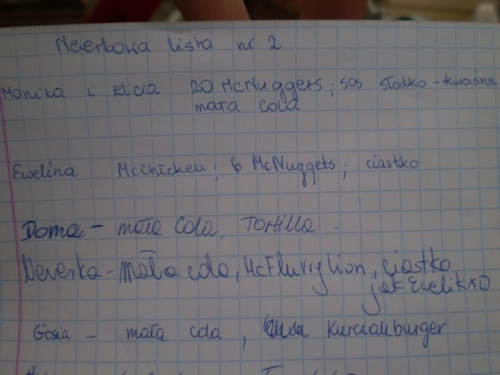 Neverkowa lista nr 2
Monika i Elcia 20 McNuggers; sos słodko-kwaśne
mała cola
Ewelina McChicken; 6 McNuggets; ciastko
Doma - mała Cola, Tortilla.
Neverka - mała cola, McFlurry lion, ciastko
jak Ewelinko
Gosia - mała cola, Kurczakburger